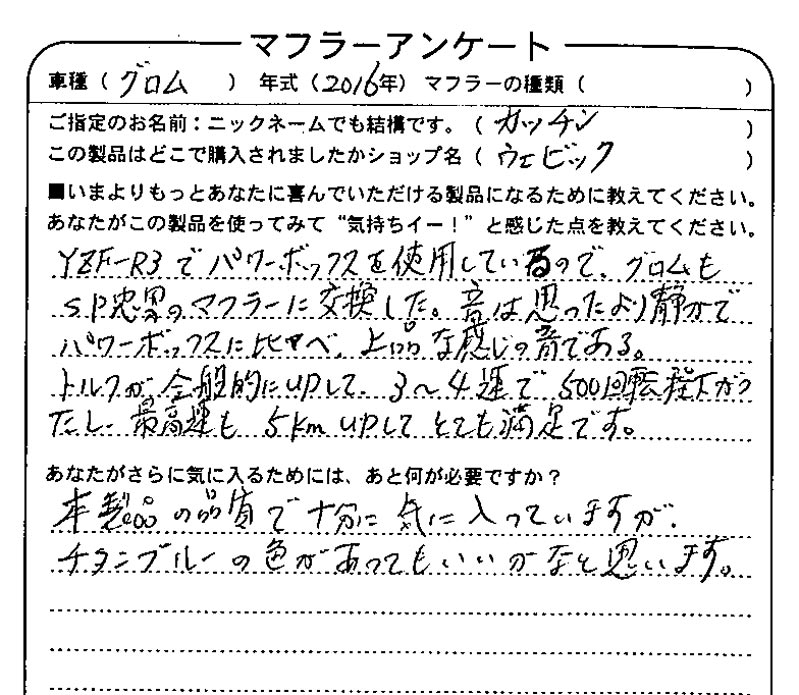 マフラーアンケート
車種（グロム）年式（2016年）マフラーの種類（　　）
ご指定のお名前：ニックネームでも結構です。（カッチン）
この製品はどこで購入されましたかショップ名（ウェビック）
■いまよりもっとあなたに喜んでいただける製品になるために教えてください。
あなたがこの製品を使ってみて“気持ちイー！”と感じた点を教えてください。
YZF-R3でパワーボックスを使用しているので、グロムも
SP忠男のマフラーに交換した。音は思ったより静かで
パワーボックスに比べ、上品な感じの音である。
トルクが全般的にUPして、3〜4速で500回転程下がっ
たし、最高速も5km UPしてとても満足です。
あなたがさらに気に入るためには、あと何が必要ですか？
本製品の品質で十分に気に入っていますが、
チタンブルーの色があってもいいかなと思います。